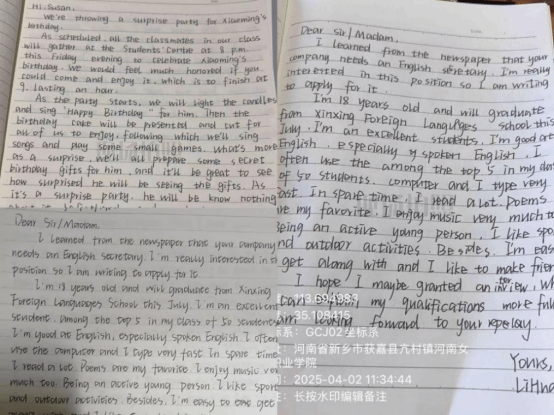 Hi, Susan.
We're throwing a surprise party for Xiaoming's
birthday.
As scheduled, all the classmates in our class
will gather at the Students' Centre at 8 p.m.
this Friday evening to celebrate Xiaoming's
birthday. We would feel much honored if you
could come and enjoy it, which is to finish at
9, lasting an hour.
As the party starts, we will light the candles
and sing "Happy Birthday" for him. Then the
birthday cake will be presented and cut for
all of us to enjoy, following which we'll sing
songs and play some small games. What's more
as a surprise, we'll all prepare some secret
birthday gifts for him, and it'll be great to see
how surprised he will be seeing the gifts. As
it's a surprise party, he will be know nothing
Dear Sir/Madam.
I learned from the newspaper that your company
needs an English Secretary. I'm really interested in this
position. so I am writing to apply for it
I'm 18 years old and will graduate from Xinxing
Foreign Languages School this July. I'm an excellent
student, among the top 5 in my class of 50 students
I'm good at English, especially spoken English. I often
use the computer and I type very fast In spare time
I read a lot. Poems are my favorite. I enjoy music very
much too. Being an active young person, I like sport
and outdoor activities. Besides, I'm easy to get
Dear Sir/Madam.
I learned from the newspaper that your
company needs an English secretary. I'm really
interested in this position so I am writing
to apply for it.
I'm 18 years old and will graduate
from Xinxing Foreign Languages school this
July. I'm an excellent students, I'm good at
English, especially y spoken English, I
often use the among the top 5 in my
of 50 students. computer and I type very
fast In spare time, I read a lot. Poems
are my favorite. I enjoy music very much to
Being an active young person, I like spo
and outdoor activities. Besides, I'm eas
get along with and I like to make frien
I hope I maybe granted an
my qualifications more ful
looking forward to your repelay.
Yours,
LiHua
113.694983
35.108415
系：GCJ02坐标系
：河南省新乡市获嘉县亢村镇河南女
业学院
：2025-04-02 11:34:44
：长按水印编辑备注